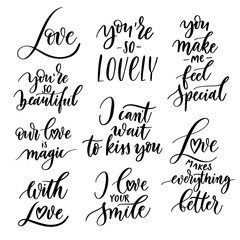 Love
you're
so
beautiful
our love
is
magic
with
Love
you're
-SO-
LOVELY
I can't
wait
to kiss you
I love
YOUR
Smile
you
make
ME
feel
special
Love
MAKES
everything
better